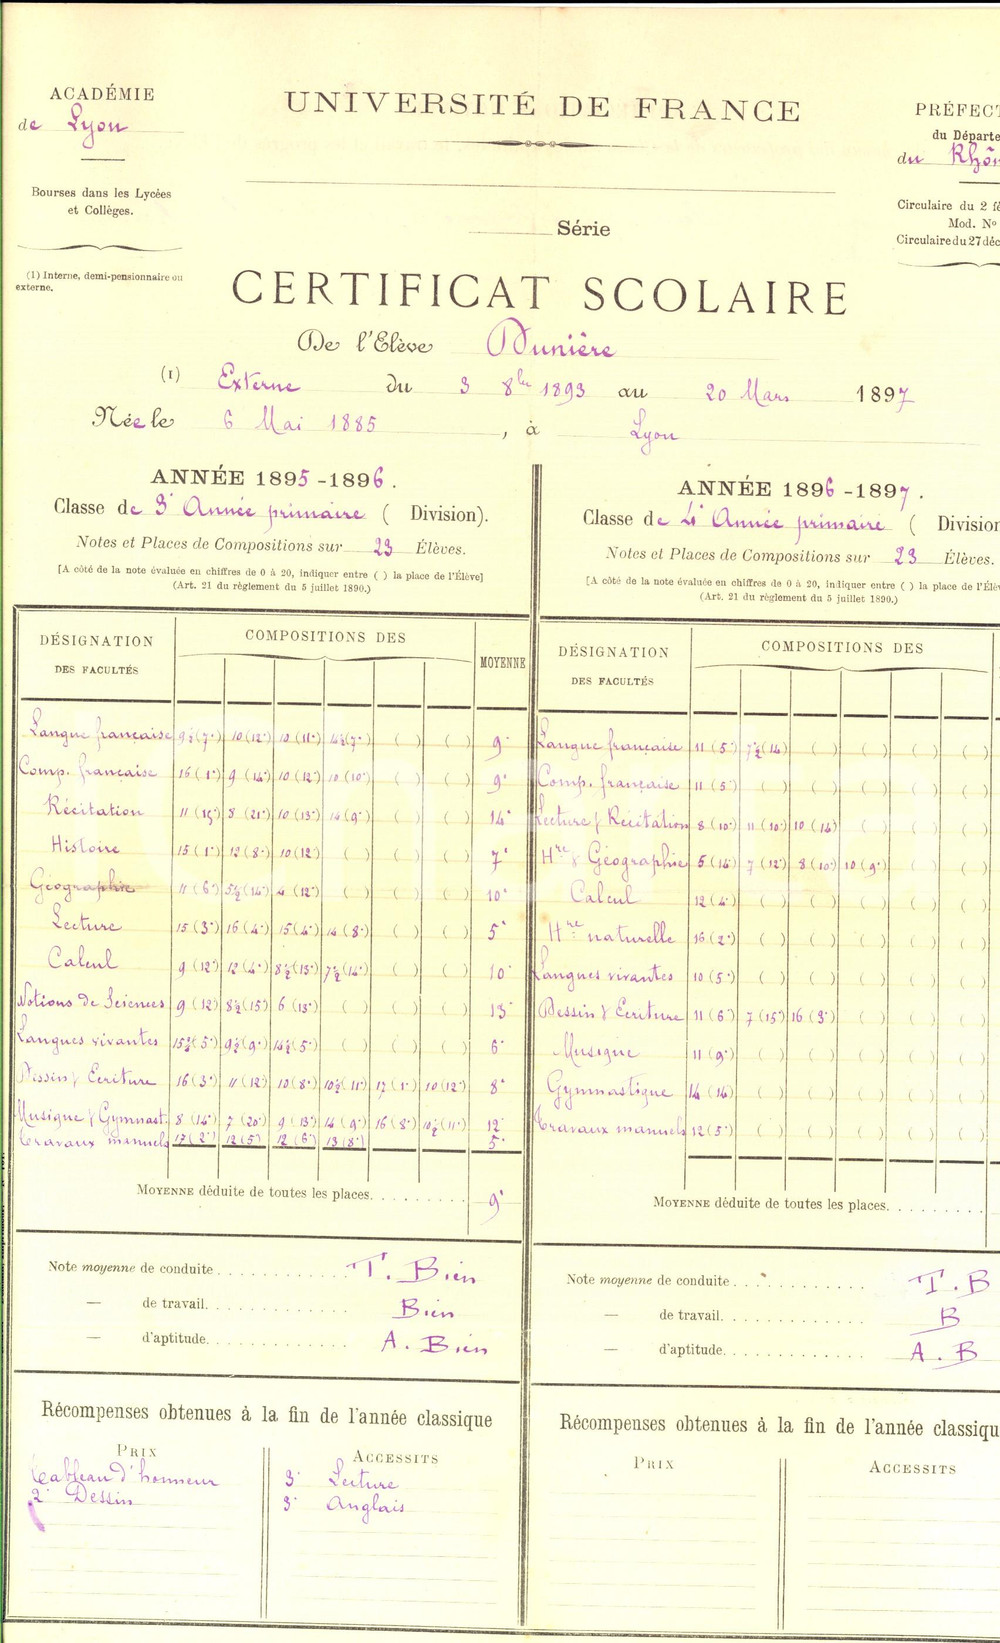 ACADÉMIE
de Lyon
Bourses dans les Lycées
et Collèges.
(1) Interne, demi-pensionnaire ou
externe.
UNIVERSITÉ DE FRANCE
Série
PRÉFECT
du Départe
du Rhôn
Circulaire du 2 fé
Mod. N°
Circulaire du 27 déc
CERTIFICAT SCOLAIRE
De l'Elève Dunière
(1) Externe du 3 8bre 1893 au 20 Mars 1897
Née le 6 Mai 1885, à Lyon
ANNÉE 1895-1896.
Classe de 3e Année primaire ( Division).
Notes et Places de Compositions sur 23 Élèves.
[A côté de la note évaluée en chiffres de 0 à 20, indiquer entre ( ) la place de l'Élève]
(Art. 21 du règlement du 5 juillet 1890.)
DÉSIGNATION
DES FACULTÉS
COMPOSITIONS DES
MOYENNE
Langue française 9½ (7e) 10 (12e) 10 (11e) 14½ (7e) ( ) ( ) 9e
Comp. française 16 (1e) 9 (14e) 10 (12e) 10 (10e) ( ) ( ) 9e
Récitation 11 (15e) 8 (21e) 10 (13e) 14 (9e) ( ) ( ) 14e
Histoire 15 (1e) 12 (8e) 10 (12) ( ) ( ) ( ) 7e
Géographie 11 (6e) 5½ (14e) 4 (12e) ( ) ( ) ( ) 10e
Lecture 15 (3e) 16 (4e) 15 (4e) 14 (8e) ( ) ( ) 5e
Calcul 9 (12e) 12 (4e) 8½ (13e) 7½ (14e) ( ) ( ) 10e
Notions de Sciences 9 (12) 8½ (15e) 6 (13e) ( ) ( ) ( ) 13e
Langues vivantes 15½ (5e) 9½ (9e) 14½ (5e) ( ) ( ) ( ) 6e
Dessin & Ecriture 16 (3e) 11 (12e) 10 (8e) 10½ (11e) 17 (1e) 10 (12e) 8e
Musique & Gymnast. 8 (14e) 7 (20e) 9 (13e) 14 (9e) 16 (8e) 10½ (11e) 12e
Travaux manuels 17 (2e) 12 (5e) 12 (6e) 13 (8e) 5e
MOYENNE déduite de toutes les places. . . . . . . . . 9e
Note moyenne de conduite . . . . . . . . . . . . T. Bien
— de travail. . . . . . . . . . . . . Bien
— d'aptitude. . . . . . . . . . . . . A. Bien
Récompenses obtenues à la fin de l'année classique
PRIX
Tableau d'honneur
2e Dessin
ACCESSITS
3e Lecture
3e Anglais
ANNÉE 1896-1897.
Classe de 4e Année primaire ( Division
Notes et Places de Compositions sur 23 Élèves.
[A côté de la note évaluée en chiffres de 0 à 20, indiquer entre ( ) la place de l'Élè
(Art. 21 du règlement du 5 juillet 1890.)
DÉSIGNATION
DES FACULTÉS
COMPOSITIONS DES
Langue française 11 (5e) 7½ (14) ( ) ( ) ( ) ( )
Comp. française 11 (5e) ( ) ( ) ( ) ( ) ( )
Lecture & Récitation 8 (10e) 11 (10e) 10 (14) ( ) ( ) ( )
Hre & Géographie 5 (14e) 7 (12e) 8 (10e) 10 (9e) ( ) ( )
Calcul 12 (4e) ( ) ( ) ( ) ( ) ( )
Hre naturelle 16 (2e) ( ) ( ) ( ) ( ) ( )
Langues vivantes 10 (5e) ( ) ( ) ( ) ( ) ( )
Dessin & Ecriture 11 (6e) 7 (15e) 16 (3e) ( ) ( ) ( )
Musique 11 (9e) ( ) ( ) ( ) ( ) ( )
Gymnastique 14 (14) ( ) ( ) ( ) ( ) ( )
Travaux manuels 12 (5e) ( ) ( ) ( ) ( ) ( )
MOYENNE déduite de toutes les places. . . . . . . . .
Note moyenne de conduite . . . . . . . . . . . . T. B
— de travail. . . . . . . . . . . . . B
— d'aptitude. . . . . . . . . . . . . A. B
Récompenses obtenues à la fin de l'année classiqu
PRIX
ACCESSITS